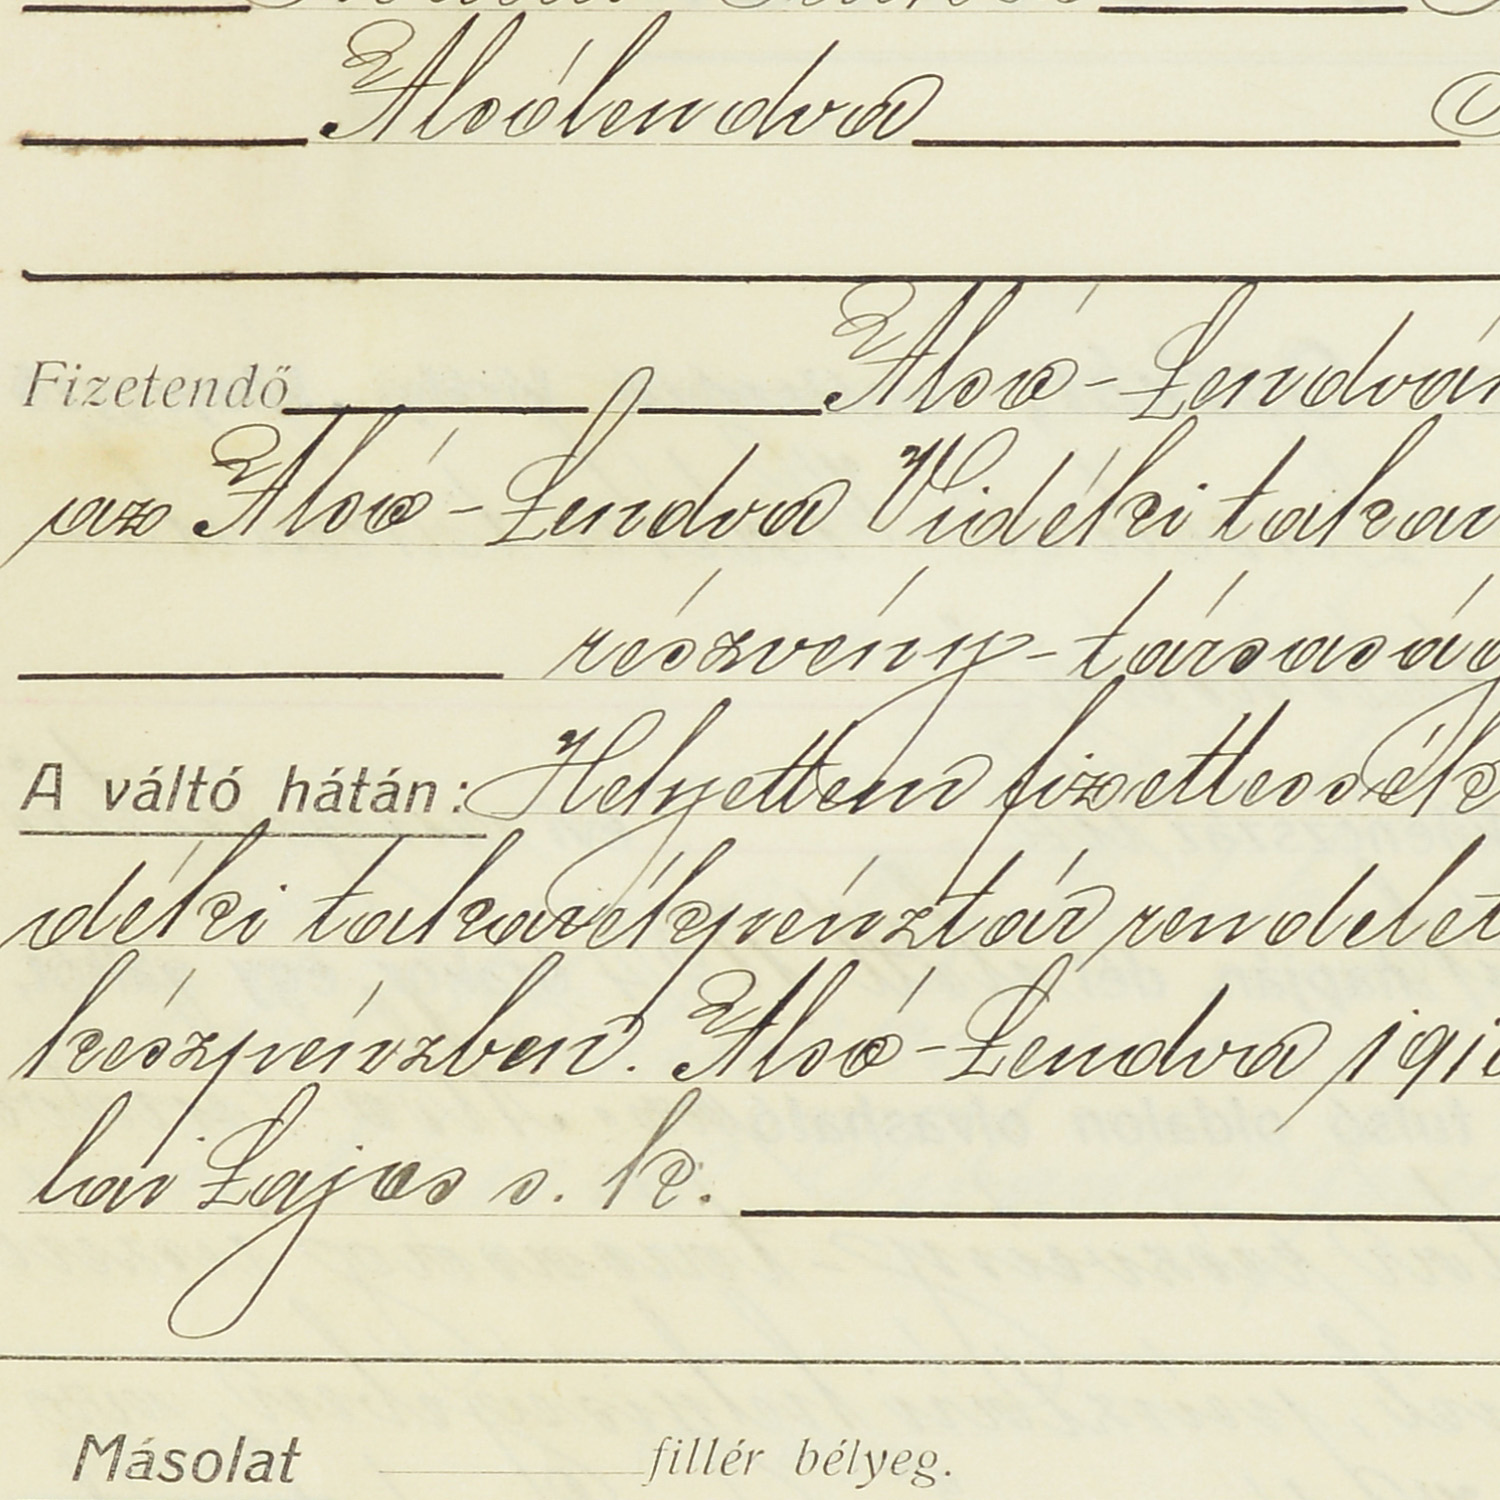 Alsólendva
Alsó-Lendván
Fizetendő
az Alsó-Lendva Vidéki takar
részvény-társaság
A váltó hátán: Helyettem fizettessék
déki takarékpénztár rendelet
készpénzben. Alsó-Lendva 191
lai Lajos s. k.
Másolat fillér bélyeg.